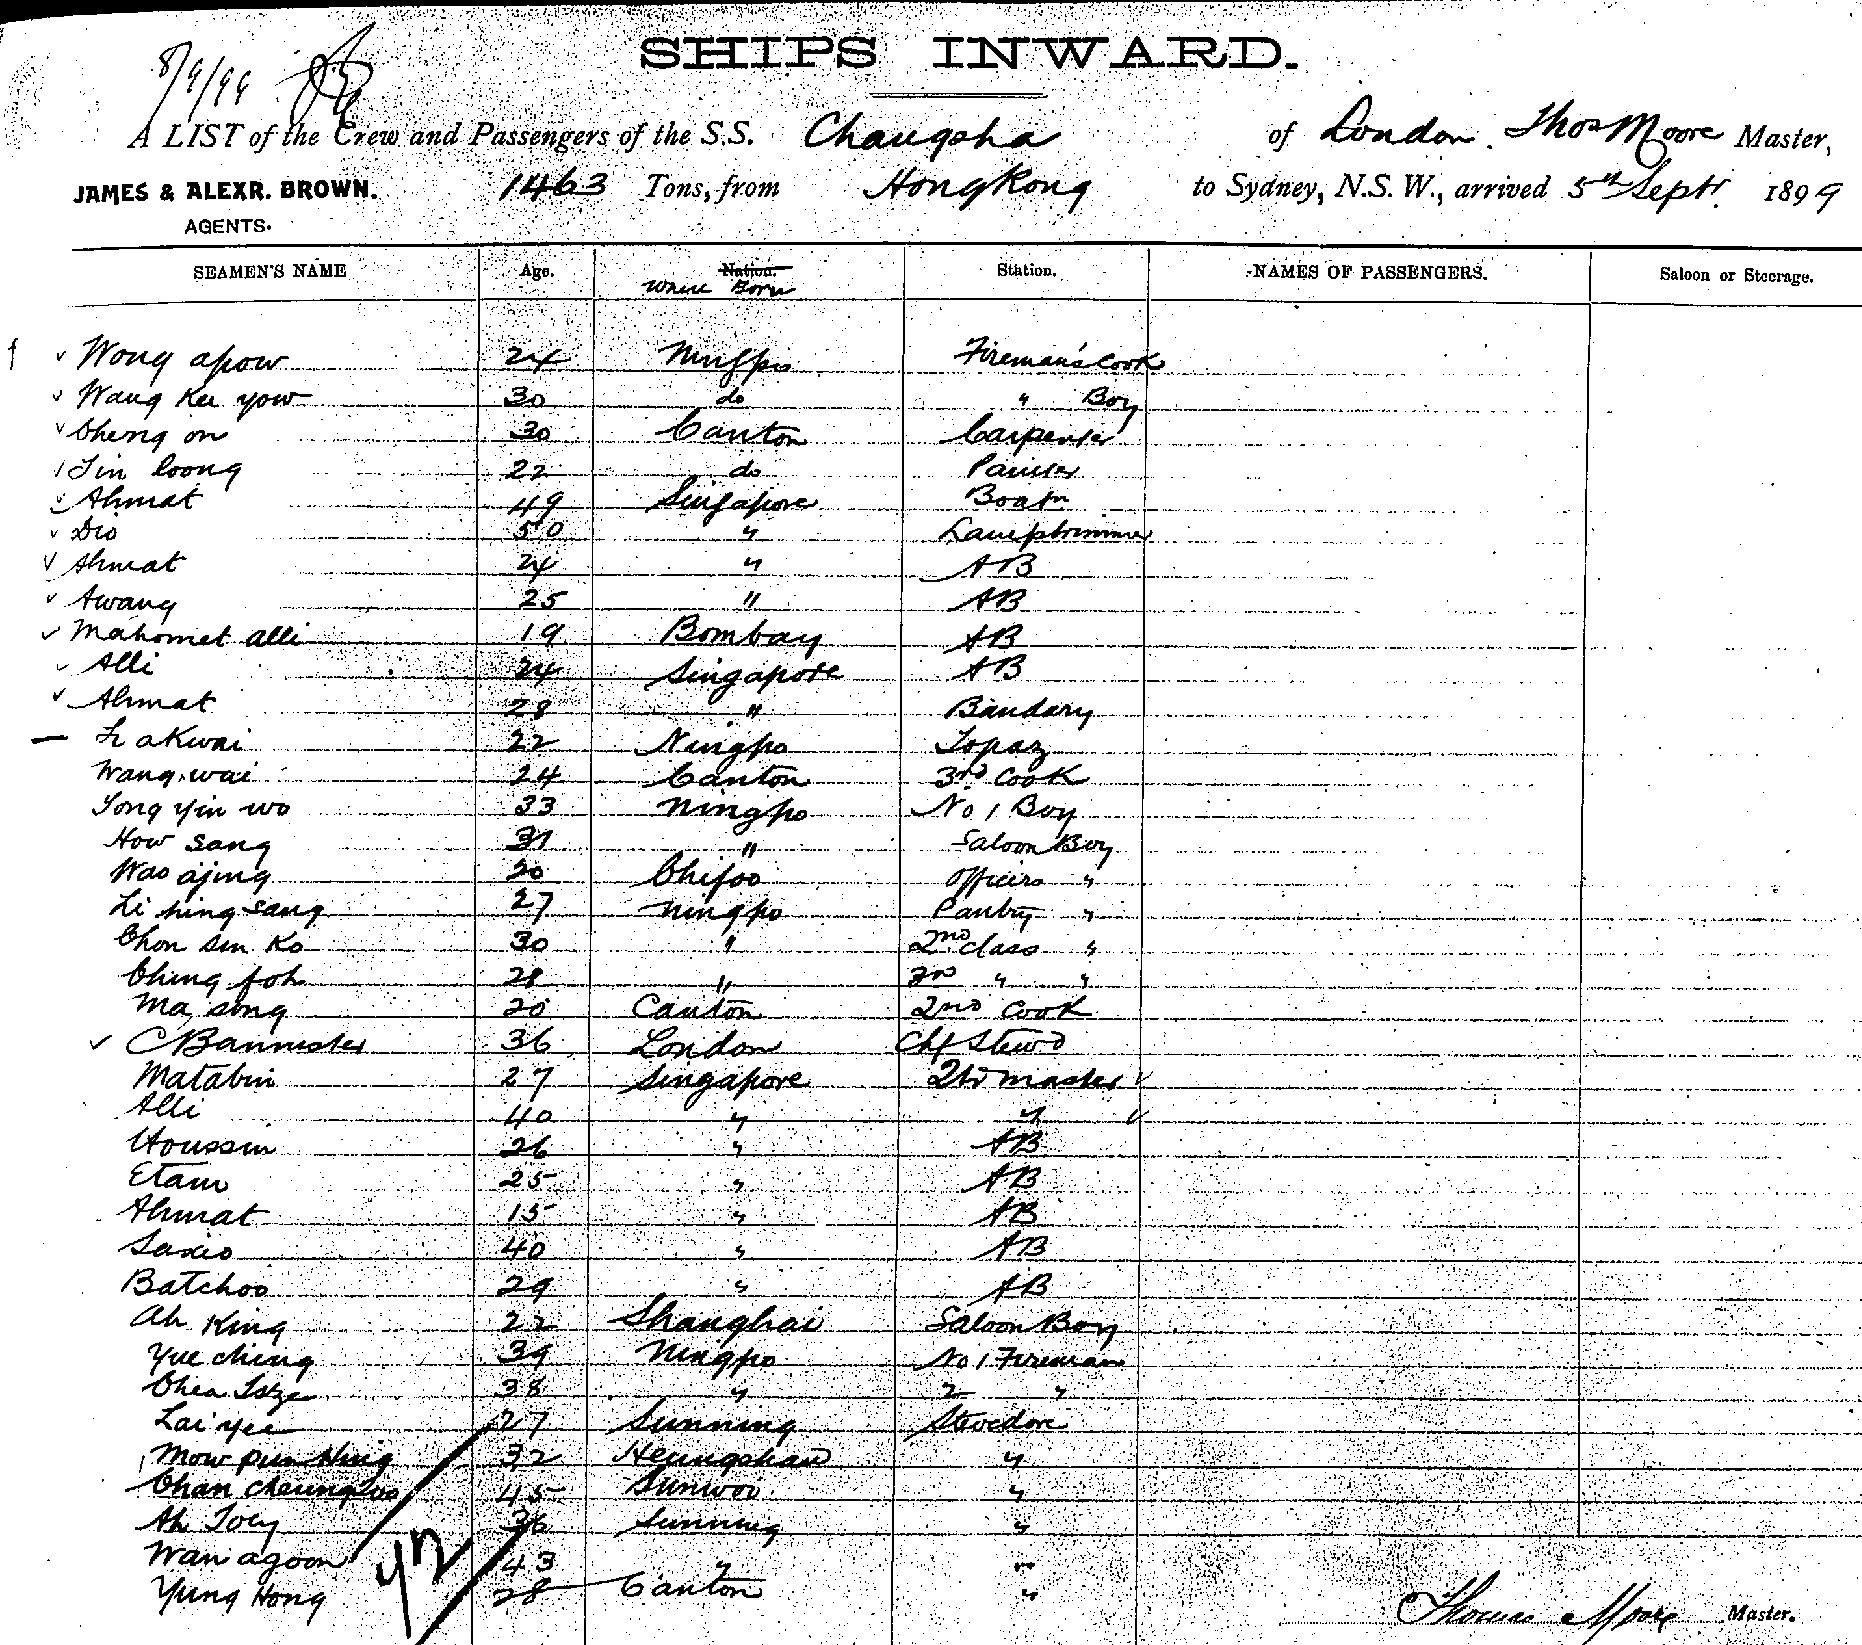 8/9/99
SHIPS INWARD.
A LIST of the Crew and Passengers of the S.S. Changsha of London. Thos Moore Master,
JAMES & ALEXR. BROWN. 1463 Tons, from HongKong to Sydney, N.S.W., arrived 5th Septr 1899
AGENTS.
SEAMEN'S NAME Age. Nation. Station. NAMES OF PASSENGERS. Saloon or Steerage.
Where Born
Wong apow 24 Ningpo Fireman's Cook
Wang Kee yow 30 do " Boy
Cheng on 30 Canton Carpenter
Tin loong 22 do Painter
Ahmat 49 Singapore Boatn
Dio 50 " Lamptrimmer
Ahmat 24 " AB
Awang 25 " AB
Mahomet alli 19 Bombay AB
Alli 24 Singapore AB
Ahmat 28 " Bandary
akwai 22 Ningpo Topaz
Wang wai 24 Canton 3rd Cook
Yong Yin wo 33 Ningpo No 1 Boy
How Sang 31 " Saloon Boy
Wao ajing 20 Chifoo Officers "
Li hing Sang 27 Ningpo Pantry "
Chon sun Ko 30 " 2nd class "
Ching foh 28 " " "
Ma song 20 Canton 2nd Cook
C Bannister 36 London Chf Stewd
Matabin 27 Singapore Qtr master
Alli 40 " "
Houssin 26 " AB
Etam 25 " AB
Ahmat 15 " AB
40 " AB
Batchoo 29 " AB
Ah King 22 Shanghai Saloon Boy
Yue ching 39 Ningpo No 1 Fireman
Chea 38 " 2 "
Lai Yee 27 Sunning Stevedore
Mow pun Hing 32 Heungshan "
Chan Cheung 45 Sunwoo "
Ah Toey 36 Sunning "
Wan agoon 43 " "
Yung Hong 28 Canton "
42
Thomas Moore Master.